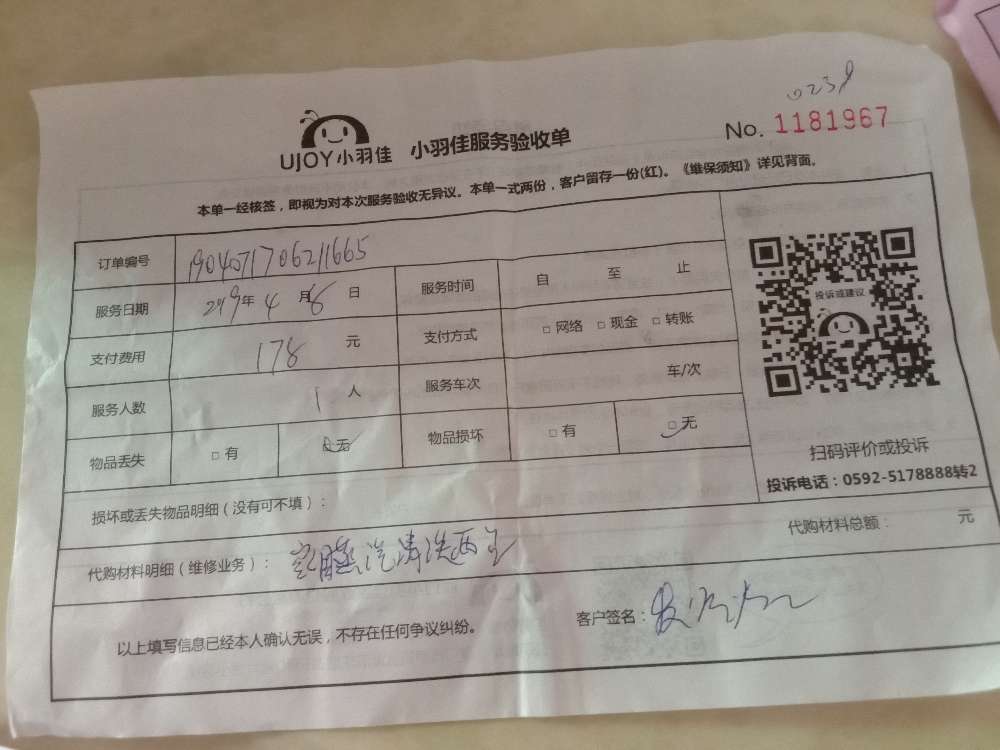 0238
UJOY小羽佳 小羽佳服务验收单 No. 1181967
本单一经核签，即视为对本次服务验收无异议。本单一式两份，客户留存一份(红)。《维保须知》详见背面。
订单编号 1904071706211665
服务日期 2019年4月8日 服务时间 自 至 止
支付费用 178 元 支付方式 □网络 □现金 □转账
服务人数 1 人 服务车次 车/次
物品丢失 □有 □无 物品损坏 □有 □无
投诉或建议
扫码评价或投诉
投诉电话：0592-5178888转2
损坏或丢失物品明细（没有可不填）：
代购材料明细（维修业务）： 清洗两 代购材料总额： 元
以上填写信息已经本人确认无误，不存在任何争议纠纷。 客户签名：